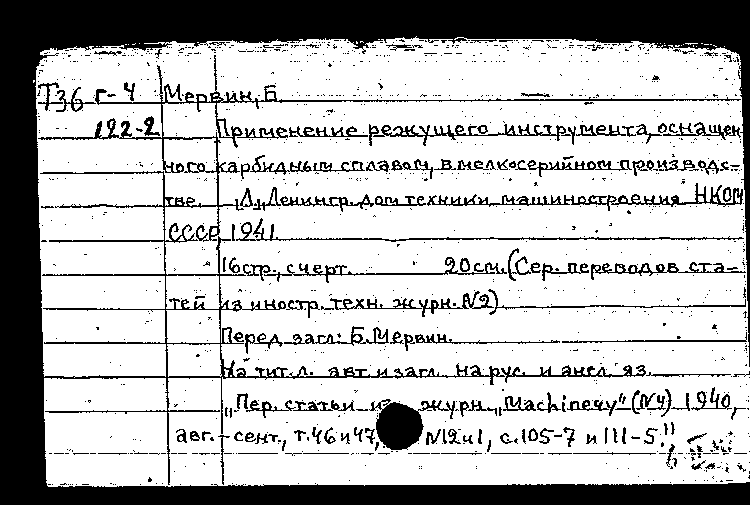 Т36 г-4 Мервин, Б.
122-2 Применение режущего инструмента, оснащен
ного карбидным сплавом, в мелкосерийном производс-
тве. Л., Ленингр. дом техники машиностроения НКОМ
СССР, 1941.
16стр., с черт. 20см. (Сер. переводов ста-
тей из иностр. техн. журн. №2)
Перед загл: Б. Мервин.
На тит. л. авт и загл. на рус. и англ. яз.
"Пер. статьи из журн. "Machinery" (N4) 1940,
авг.-сент., т.46 и 47, N12 и 1, с.105-7 и 111-5."
6